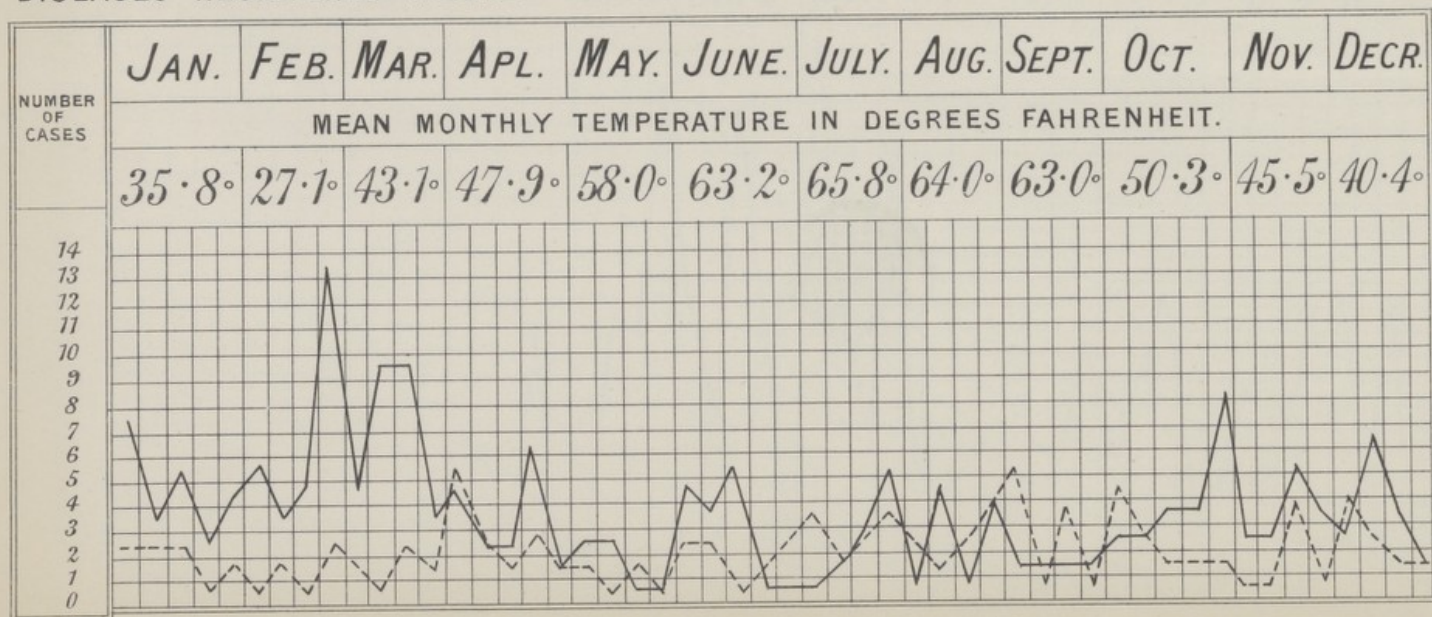 JAN. FEB. MAR. APL. MAY. JUNE. JULY. AUG. SEPT. OCT. NOV. DECR.
NUMBER
OF
CASES
MEAN MONTHLY TEMPERATURE IN DEGREES FAHRENHEIT.
35·8° 27·1° 43·1° 47·9° 58·0° 63·2° 65·8° 64·0° 63·0° 50·3° 45·5° 40·4°
14
13
12
11
10
9
8
7
6
5
4
3
2
1
0